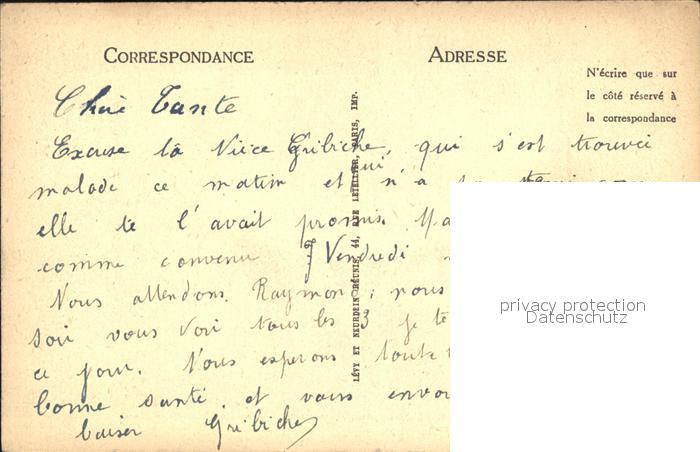 CORRESPONDANCE
ADRESSE
N'écrire que sur
le côté réservé à
la correspondance
Chère Tante
Excuse la Nièce Gribiche, qui s'est trouvée
malade ce matin et n'a
qui
elle te l'avait promis.
comme convenu Vendredi
Nous attendons Raymond; nous
soir vous voir tous les 3 je te
ce jour. Nous esperons toute
bonne santé et vous
baiser Gribiche
LÉVY ET NEURDEIN RÉUNIS, 44, RUE LETELLIER, PARIS, IMP.
privacy protection
Datenschutz